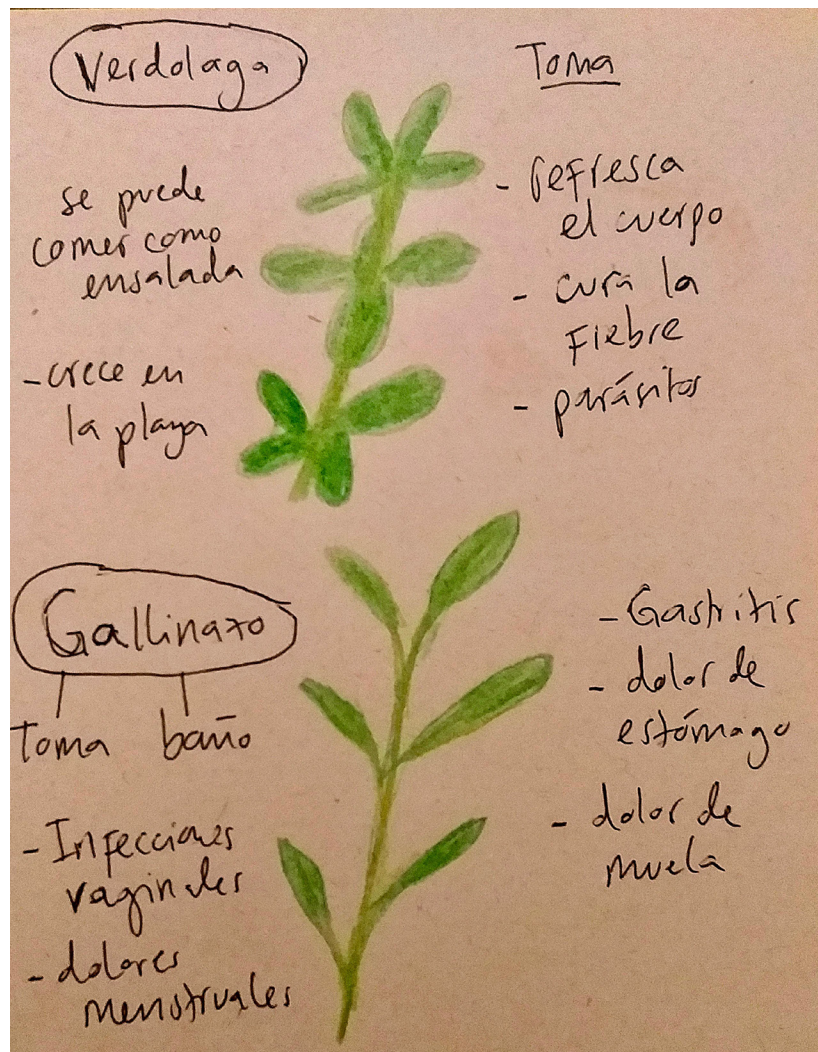 Verdolaga
se puede
comer como
ensalada
- crece en
la playa
Toma
- refresca
el cuerpo
- cura la
Fiebre
- parásitos
Gallinazo
Toma baño
- Infecciones
vaginales
- dolores
menstruales
- Gastritis
- dolor de
estómago
- dolor de
muela